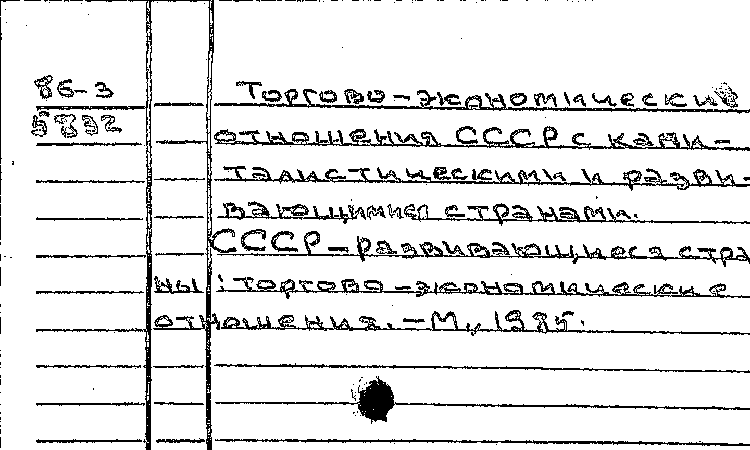 86-3
5832
Торгово-экономические
отношения СССР с капи-
талистическими и разви-
вающимися странами.
СССР-развивающиеся стра
ны: торгово-экономические
отношения. - М., 1985.